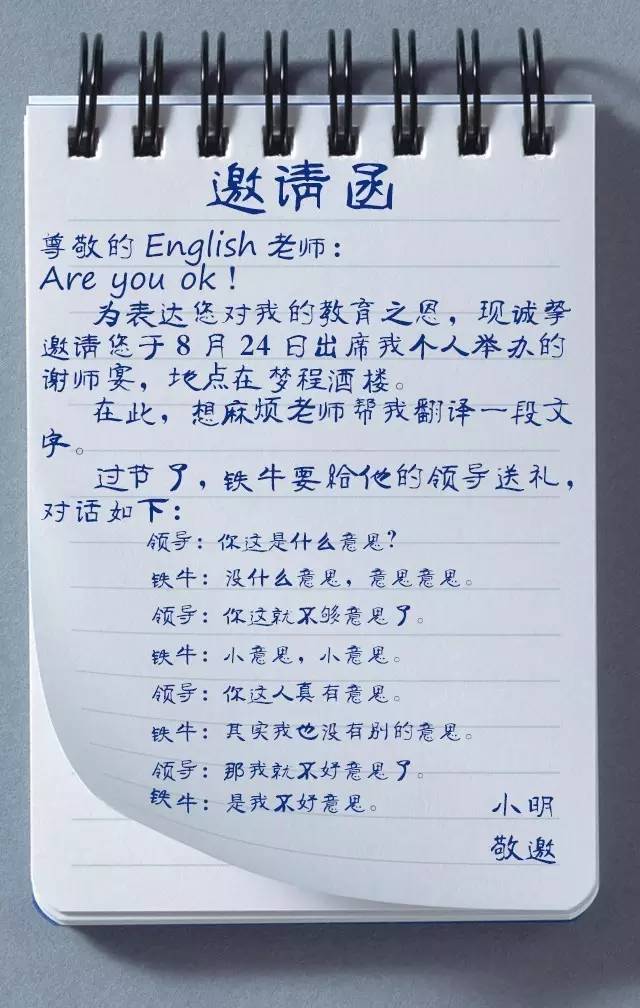 邀请函
尊敬的 English 老师：
Are you ok！
为表达您对我的教育之恩，现诚挚
邀请您于 8 月 24 日出席我个人举办的
谢师宴，地点在梦程酒楼。
在此，想麻烦老师帮我翻译一段文
字。
过节了，铁牛要给他的领导送礼，
对话如下：
领导：你这是什么意思？
铁牛：没什么意思，意思意思。
领导：你这就不够意思了。
铁牛：小意思，小意思。
领导：你这人真有意思。
铁牛：其实我也没有别的意思。
领导：那我就不好意思了。
铁牛：是我不好意思。
小明
敬邀